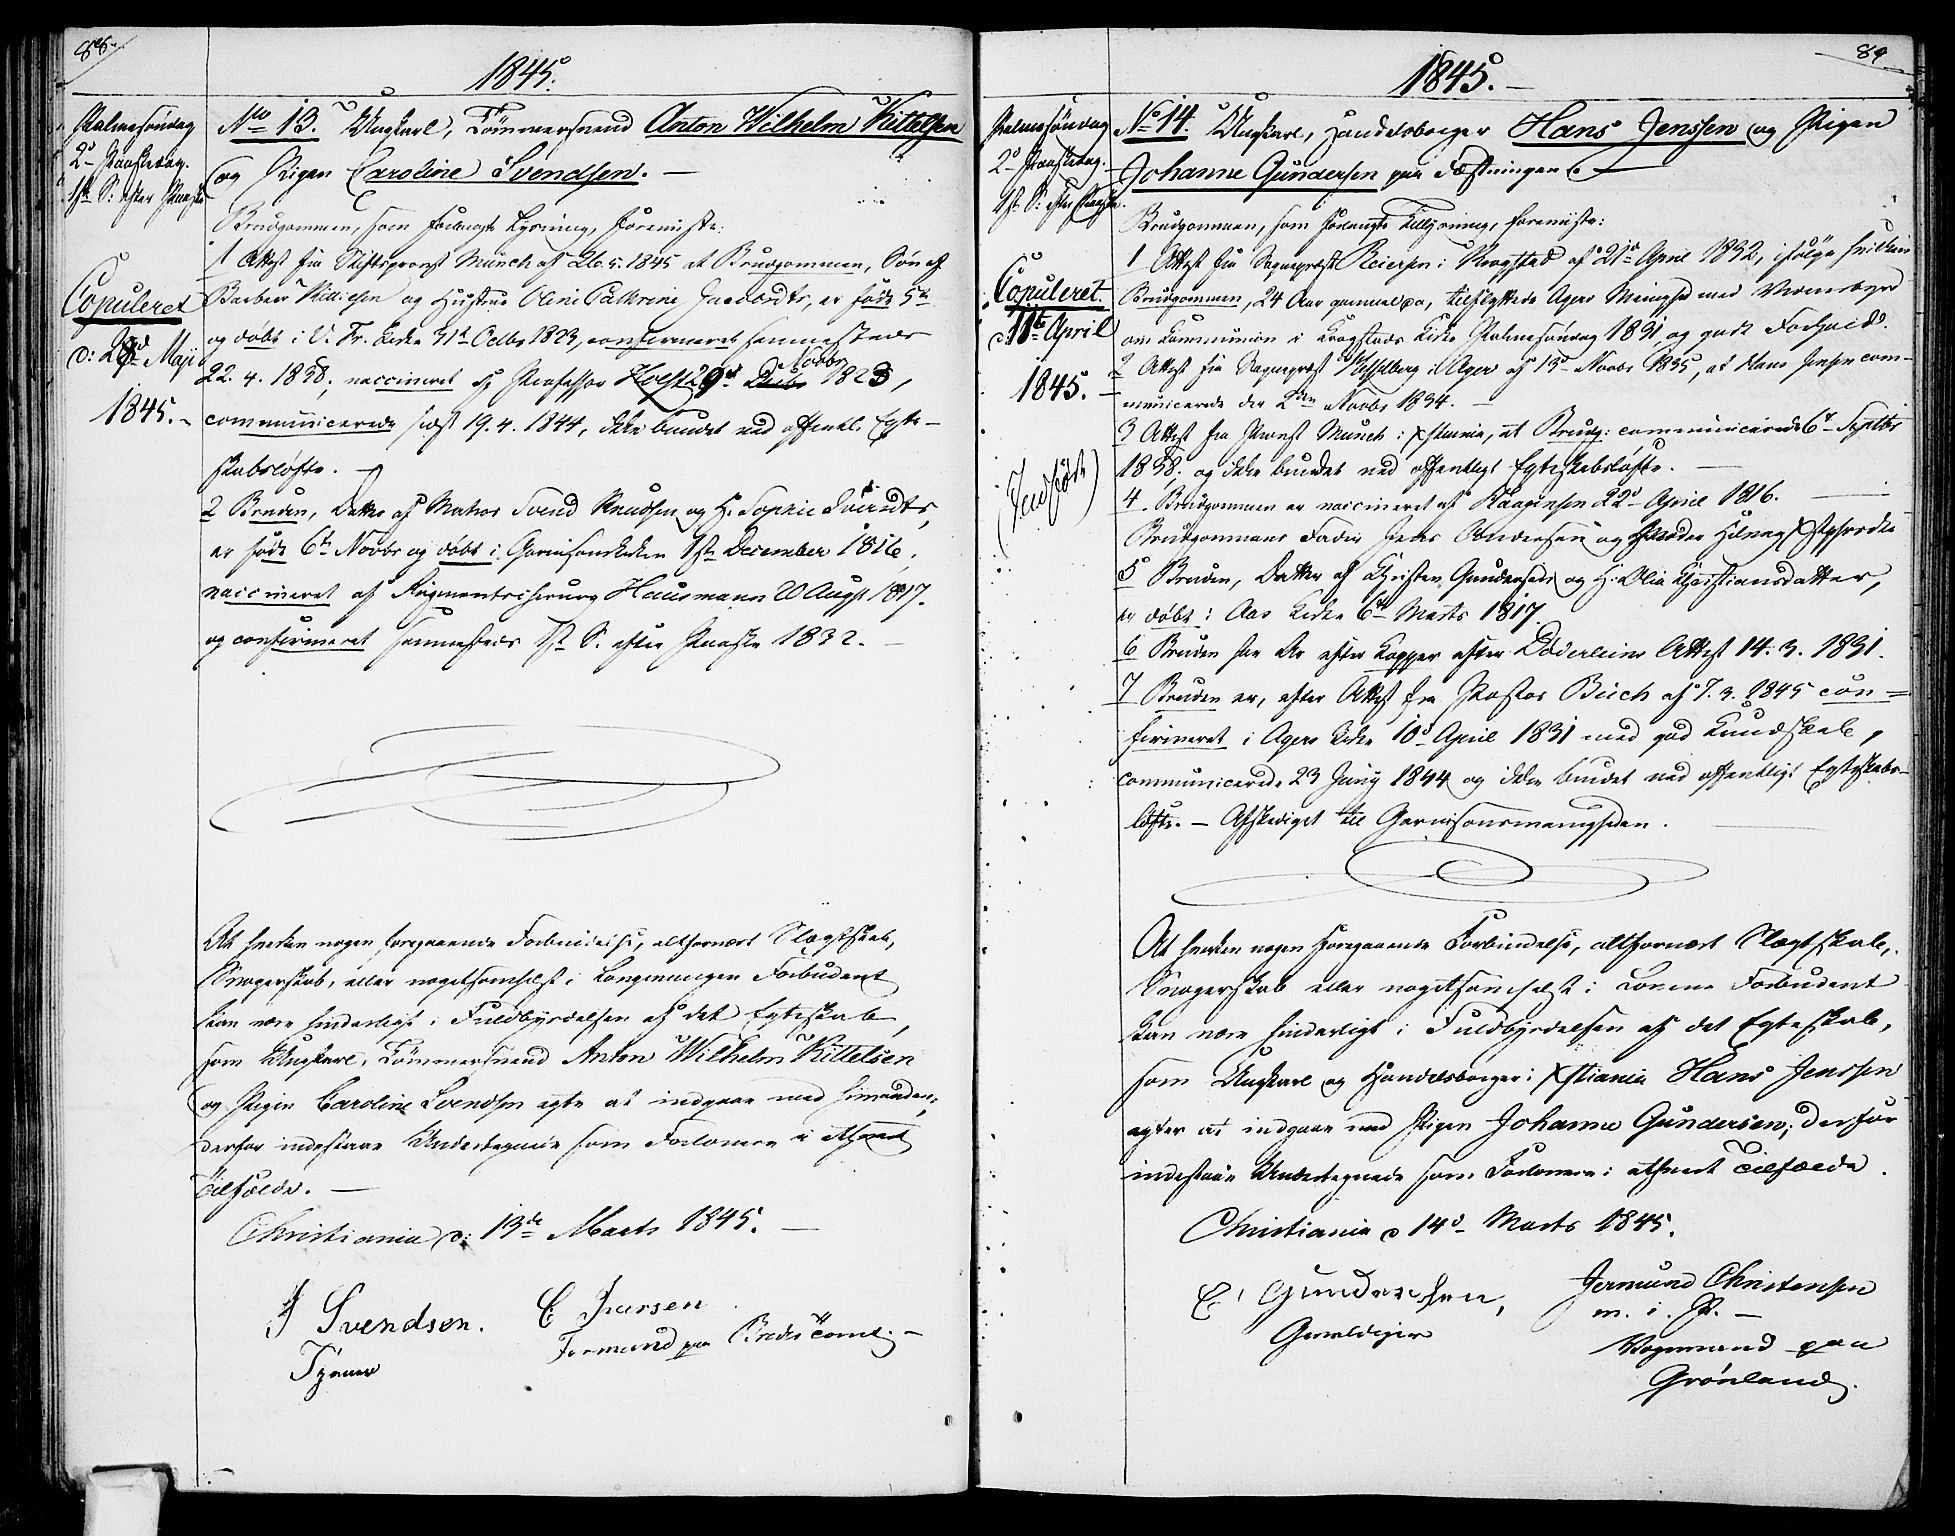 88.
1845.
Palmesöndag
2d Paaskedag.
1ste S: efter Paaske
Copuleret
d: Maji
1845.
No 13. Ungkarl, Tömmersvend Anton Wilhelm Kittelsen
og Pigen Caroline Svendsen.
Brudgommen, som forlangte Lysning, foreviste:
1 Attest fra Stiftsprovst Munch af 1845 at Brudgommen, Søn af
og Hustru Oline Cathrine er født 5te
og døbt i V. Fr. Kirke 31te Octbr 1823, confirmeret sammesteds
22. 4. 1838, vaccineret af Professor Holst 29d Novbr 1823,
communicerede sidst 19. 4. 1844, ikke bundet ved offentl. Egte-
skabsløfte.
2 Bruden, Datter af Matros Svend Knudsen og H. Sophie
er født 6te Novbr og døbt i Garnisonskirken 1ste December 1816,
vaccineret af Regimentschirurg Hausmann 20 Augst 1817.
og confirmeret sammesteds 1ste S. efter Paaske 1832.
At hverken nogen foregaaende Forbindelse, altfornært Slægtskab,
Svogerskab, eller nogetsomhelst i Lovgivningen Forbudent
kan være hinderligt i Fuldbyrdelsen af det Egteskab,
som Ungkarl, Tömmersvend Anton Wilhelm Kittelsen
og Pigen Caroline Svendsen agte at indgaae med hinanden,
derfor indestaae Undertegnede som Forlovere i ethvert
Tilfælde.
Christiania d: 13de Marts 1845.
Svendsen. C. Iversen
Formand paa
89
1845.
Palmesöndag
2d Paaskedag.
1ste S: efter Paaske.
Copuleret.
d. 11te April
1845.
(Indført)
No 14. Ungkarl, Handelsborger Hans Jenssen og Pigen
Johanne Gundersen paa Fæstningen.
Brudgommen, som forlangte Tillysning, foreviste:
1 Attest fra Sognepræst Reiersen i Krogstad af 21de April 1832, ifølge hvilken
Brudgommen, 24 Aar gammel da, tilflyttede Agers Menighed med Vidnesbyrd
om Kommunion i Krogstads Kirke Palmesøndag 1831, og godt Forhold.
2 Attest fra Sognepræst Hesselberg i Ager af 13d Novbr 1835, at Hans Jensen com-
municerede der 2den Novbr 1834.
3 Attest fra Provst Munch i Xstiania, at Brudg: communicerede 6d Septbr
1838, og ikke bundet ved offentligt Egteskabsløfte.
4. Brudgommen er vaccineret af Haagensen 22d April 1816.
Brudgommens Fader Jens Andersen og Moder
5 Bruden, Datter af Christen Gundersen og H. Olia Christiansdatter,
er døbt i Aas Kirke 6te Marts 1817.
6 Bruden har Ar efter Kopper efter Döderleins Attest 14. 3. 1831.
7 Bruden er, efter Attest fra Pastor Buch af 7. 3. 1845 con=
firmeret i Agers Kirke 10d April 1831 med god Kundskab,
communicerede 23 Juny 1844 og ikke bundet ved offentligt Egteskabs-
løfte. – Afskediget til Garnisonsmenigheden.
At hverken nogen foregaaende Forbindelse, altfornært Slægtskab,
Svogerskab eller nogetsomhelst i Lovene Forbudent
kan være hinderligt i Fuldbyrdelsen af det Egteskab,
som Ungkarl og Handelsborger i Xstiania Hans Jenssen
agter at indgaae med Pigen Johanne Gundersen; derfor
indestaae Undertegnede som Forlovere i ethvert Tilfælde.
Christiania d 14d Marts 1845.
Gundersen, Jermund Christensen
Gevaldiger m. i. P.
Vognmand paa
Grönland.